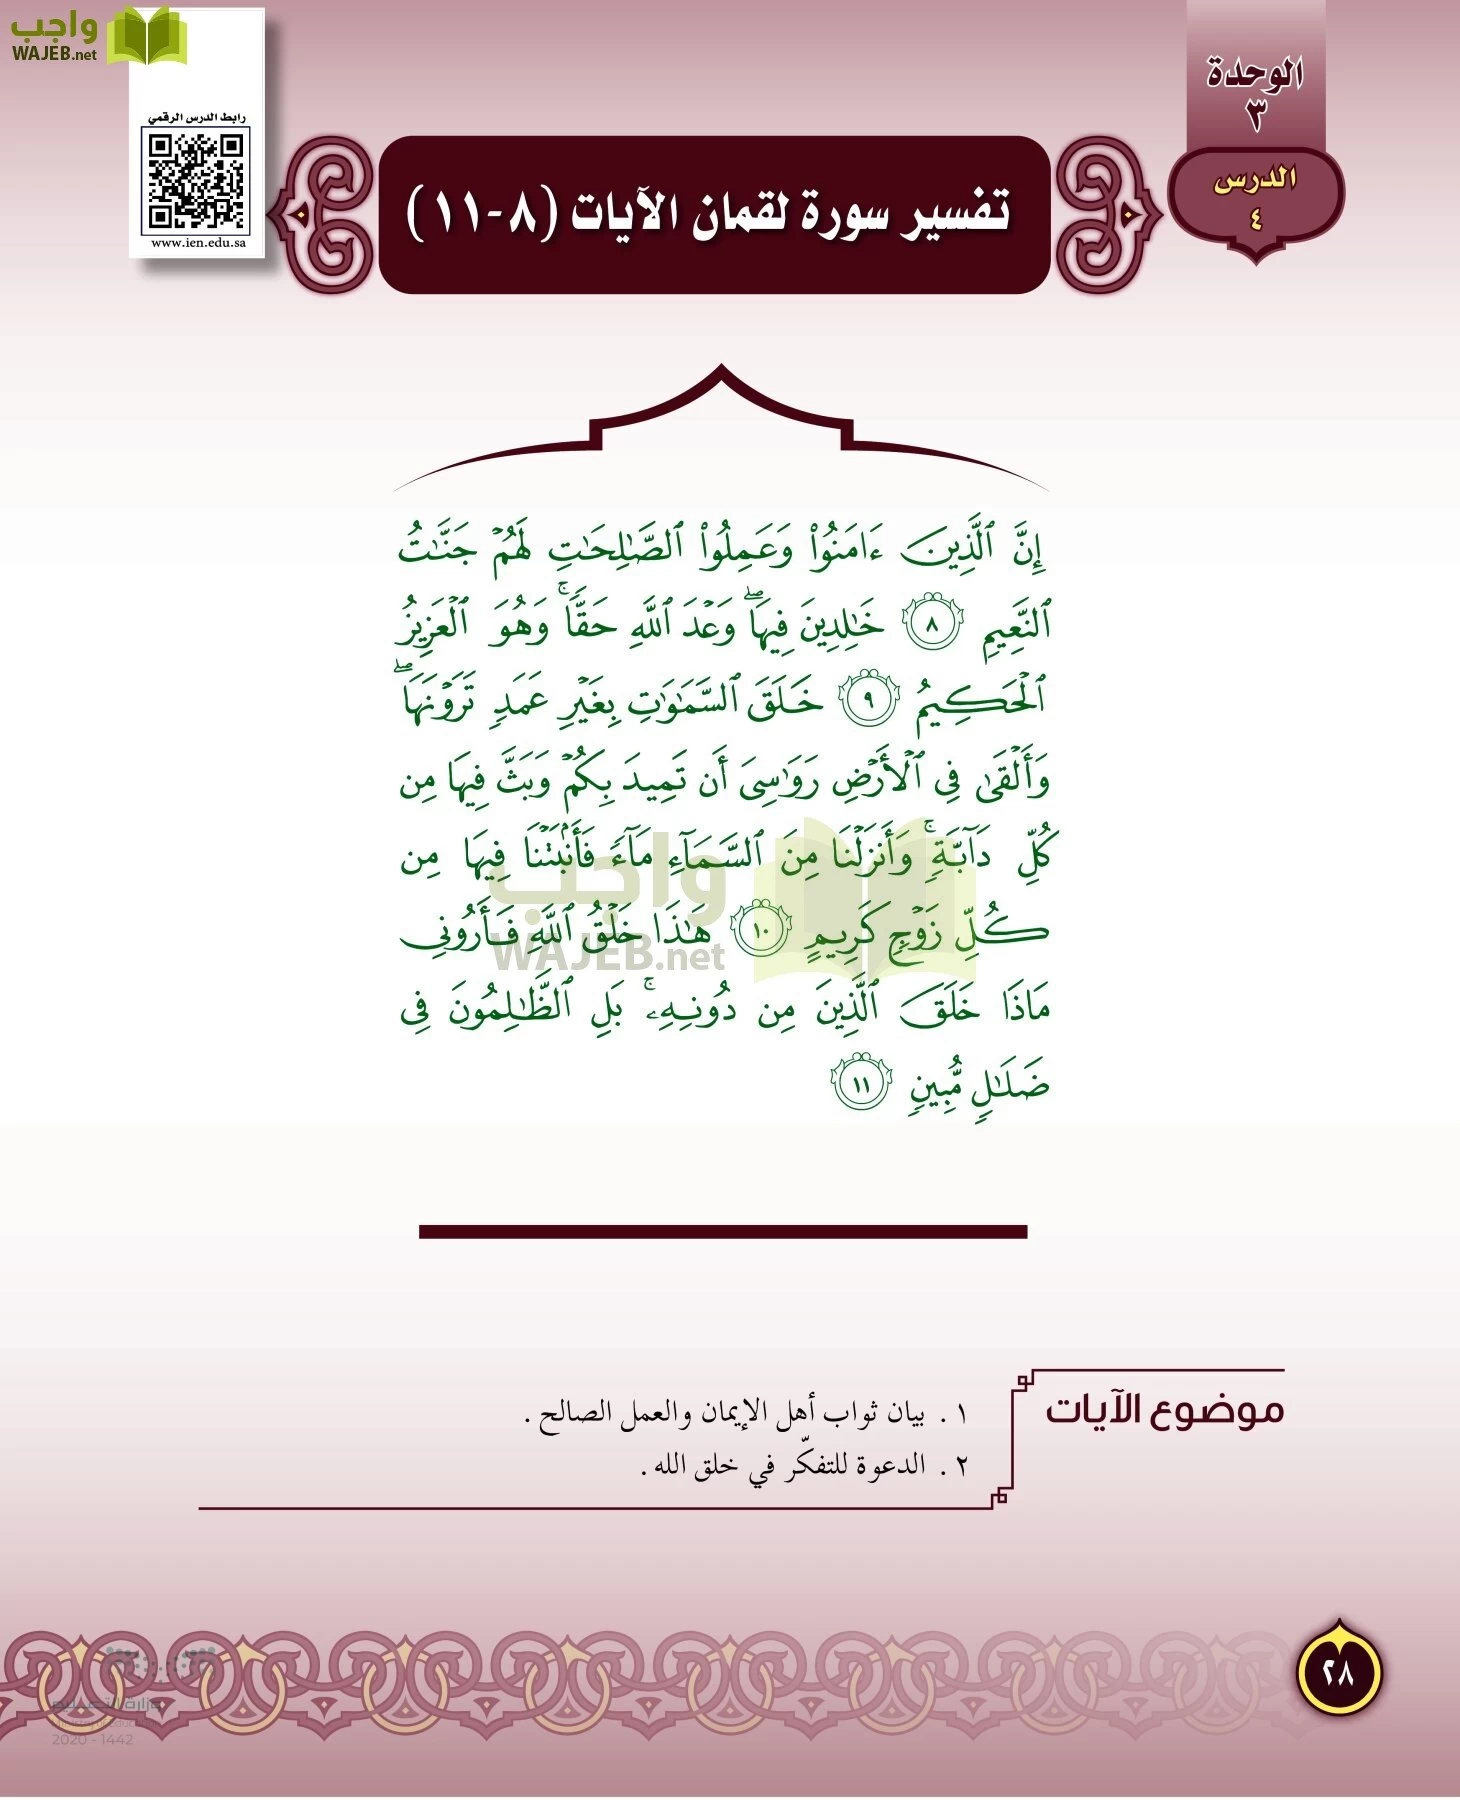 واجب
WAJEB.net
رابط الدرس الرقمي
www.ien.edu.sa
الوحدة
٣
الدرس
٤
تفسير سورة لقمان الآيات (٨-١١)
إِنَّ ٱلَّذِينَ ءَامَنُوا۟ وَعَمِلُوا۟ ٱلصَّـٰلِحَـٰتِ لَهُمْ جَنَّـٰتُ
ٱلنَّعِيمِ ٨ خَـٰلِدِينَ فِيهَا ۖ وَعْدَ ٱللَّهِ حَقًّا ۚ وَهُوَ ٱلْعَزِيزُ
ٱلْحَكِيمُ ٩ خَلَقَ ٱلسَّمَـٰوَٰتِ بِغَيْرِ عَمَدٍ تَرَوْنَهَا ۖ
وَأَلْقَىٰ فِى ٱلْأَرْضِ رَوَٰسِىَ أَن تَمِيدَ بِكُمْ وَبَثَّ فِيهَا مِن
كُلِّ دَآبَّةٍ ۚ وَأَنزَلْنَا مِنَ ٱلسَّمَآءِ مَآءً فَأَنۢبَتْنَا فِيهَا مِن
كُلِّ زَوْجٍ كَرِيمٍ ١٠ هَـٰذَا خَلْقُ ٱللَّهِ فَأَرُونِى
مَاذَا خَلَقَ ٱلَّذِينَ مِن دُونِهِۦ ۚ بَلِ ٱلظَّـٰلِمُونَ فِى
ضَلَـٰلٍ مُّبِينٍ ١١
واجب
WAJEB.net
موضوع الآيات
١ . بيان ثواب أهل الإيمان والعمل الصالح .
٢ . الدعوة للتفكّر في خلق الله .
٢٨
وزارة التعليم
Ministry of Education
2020 - 1442